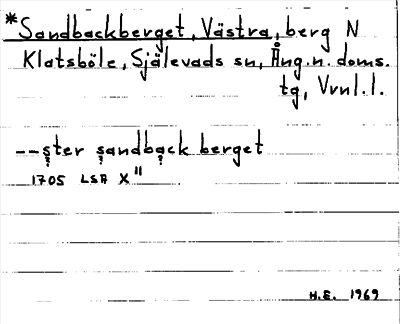 *Sandbackberget, Västra, berg N
Klatsböle, Själevads sn, Ång. n. doms.
tg, Vrnl.l.
--ṣter ṣandbạck berget
1705 LSA X"
H.E. 1969